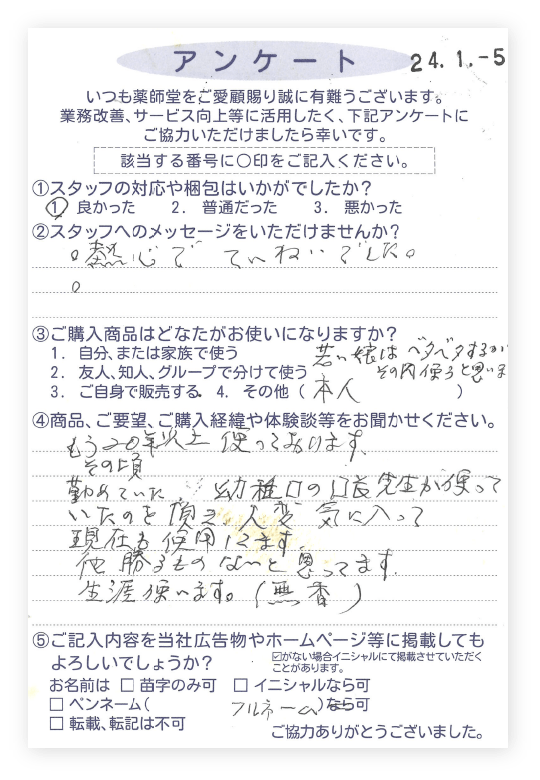 アンケート
24.1.-5
いつも薬師堂をご愛顧賜り誠に有難うございます。
業務改善、サービス向上等に活用したく、下記アンケートに
ご協力いただけましたら幸いです。
該当する番号に〇印をご記入ください。
①スタッフの対応や梱包はいかがでしたか?
1. 良かった 2. 普通だった 3. 悪かった
②スタッフへのメッセージをいただけませんか?
。熱心で ていねいでした。
③ご購入商品はどなたがお使いになりますか?
1. 自分、または家族で使う
若い娘はベタベタするが
2. 友人、知人、グループで分けて使う
その内使うと思いま
3. ご自身で販売する 4. その他 ( 本人 )
④商品、ご要望、ご購入経緯や体験談等をお聞かせください。
もう20年以上 使っております。
その頃
勤めていた 幼稚口の口長先生が使って
いたのを頂き 大変 気に入って
現在も使用してます。
他 勝るものないと思ってます。
生涯使います。(無香)
⑤ご記入内容を当社広告物やホームページ等に掲載しても
よろしいでしょうか?
☑がない場合イニシャルにて掲載させていただく
ことがあります。
お名前は □ 苗字のみ可 □ イニシャルなら可
□ ペンネーム( フルネーム )なら可
□ 転載、転記は不可
ご協力ありがとうございました。